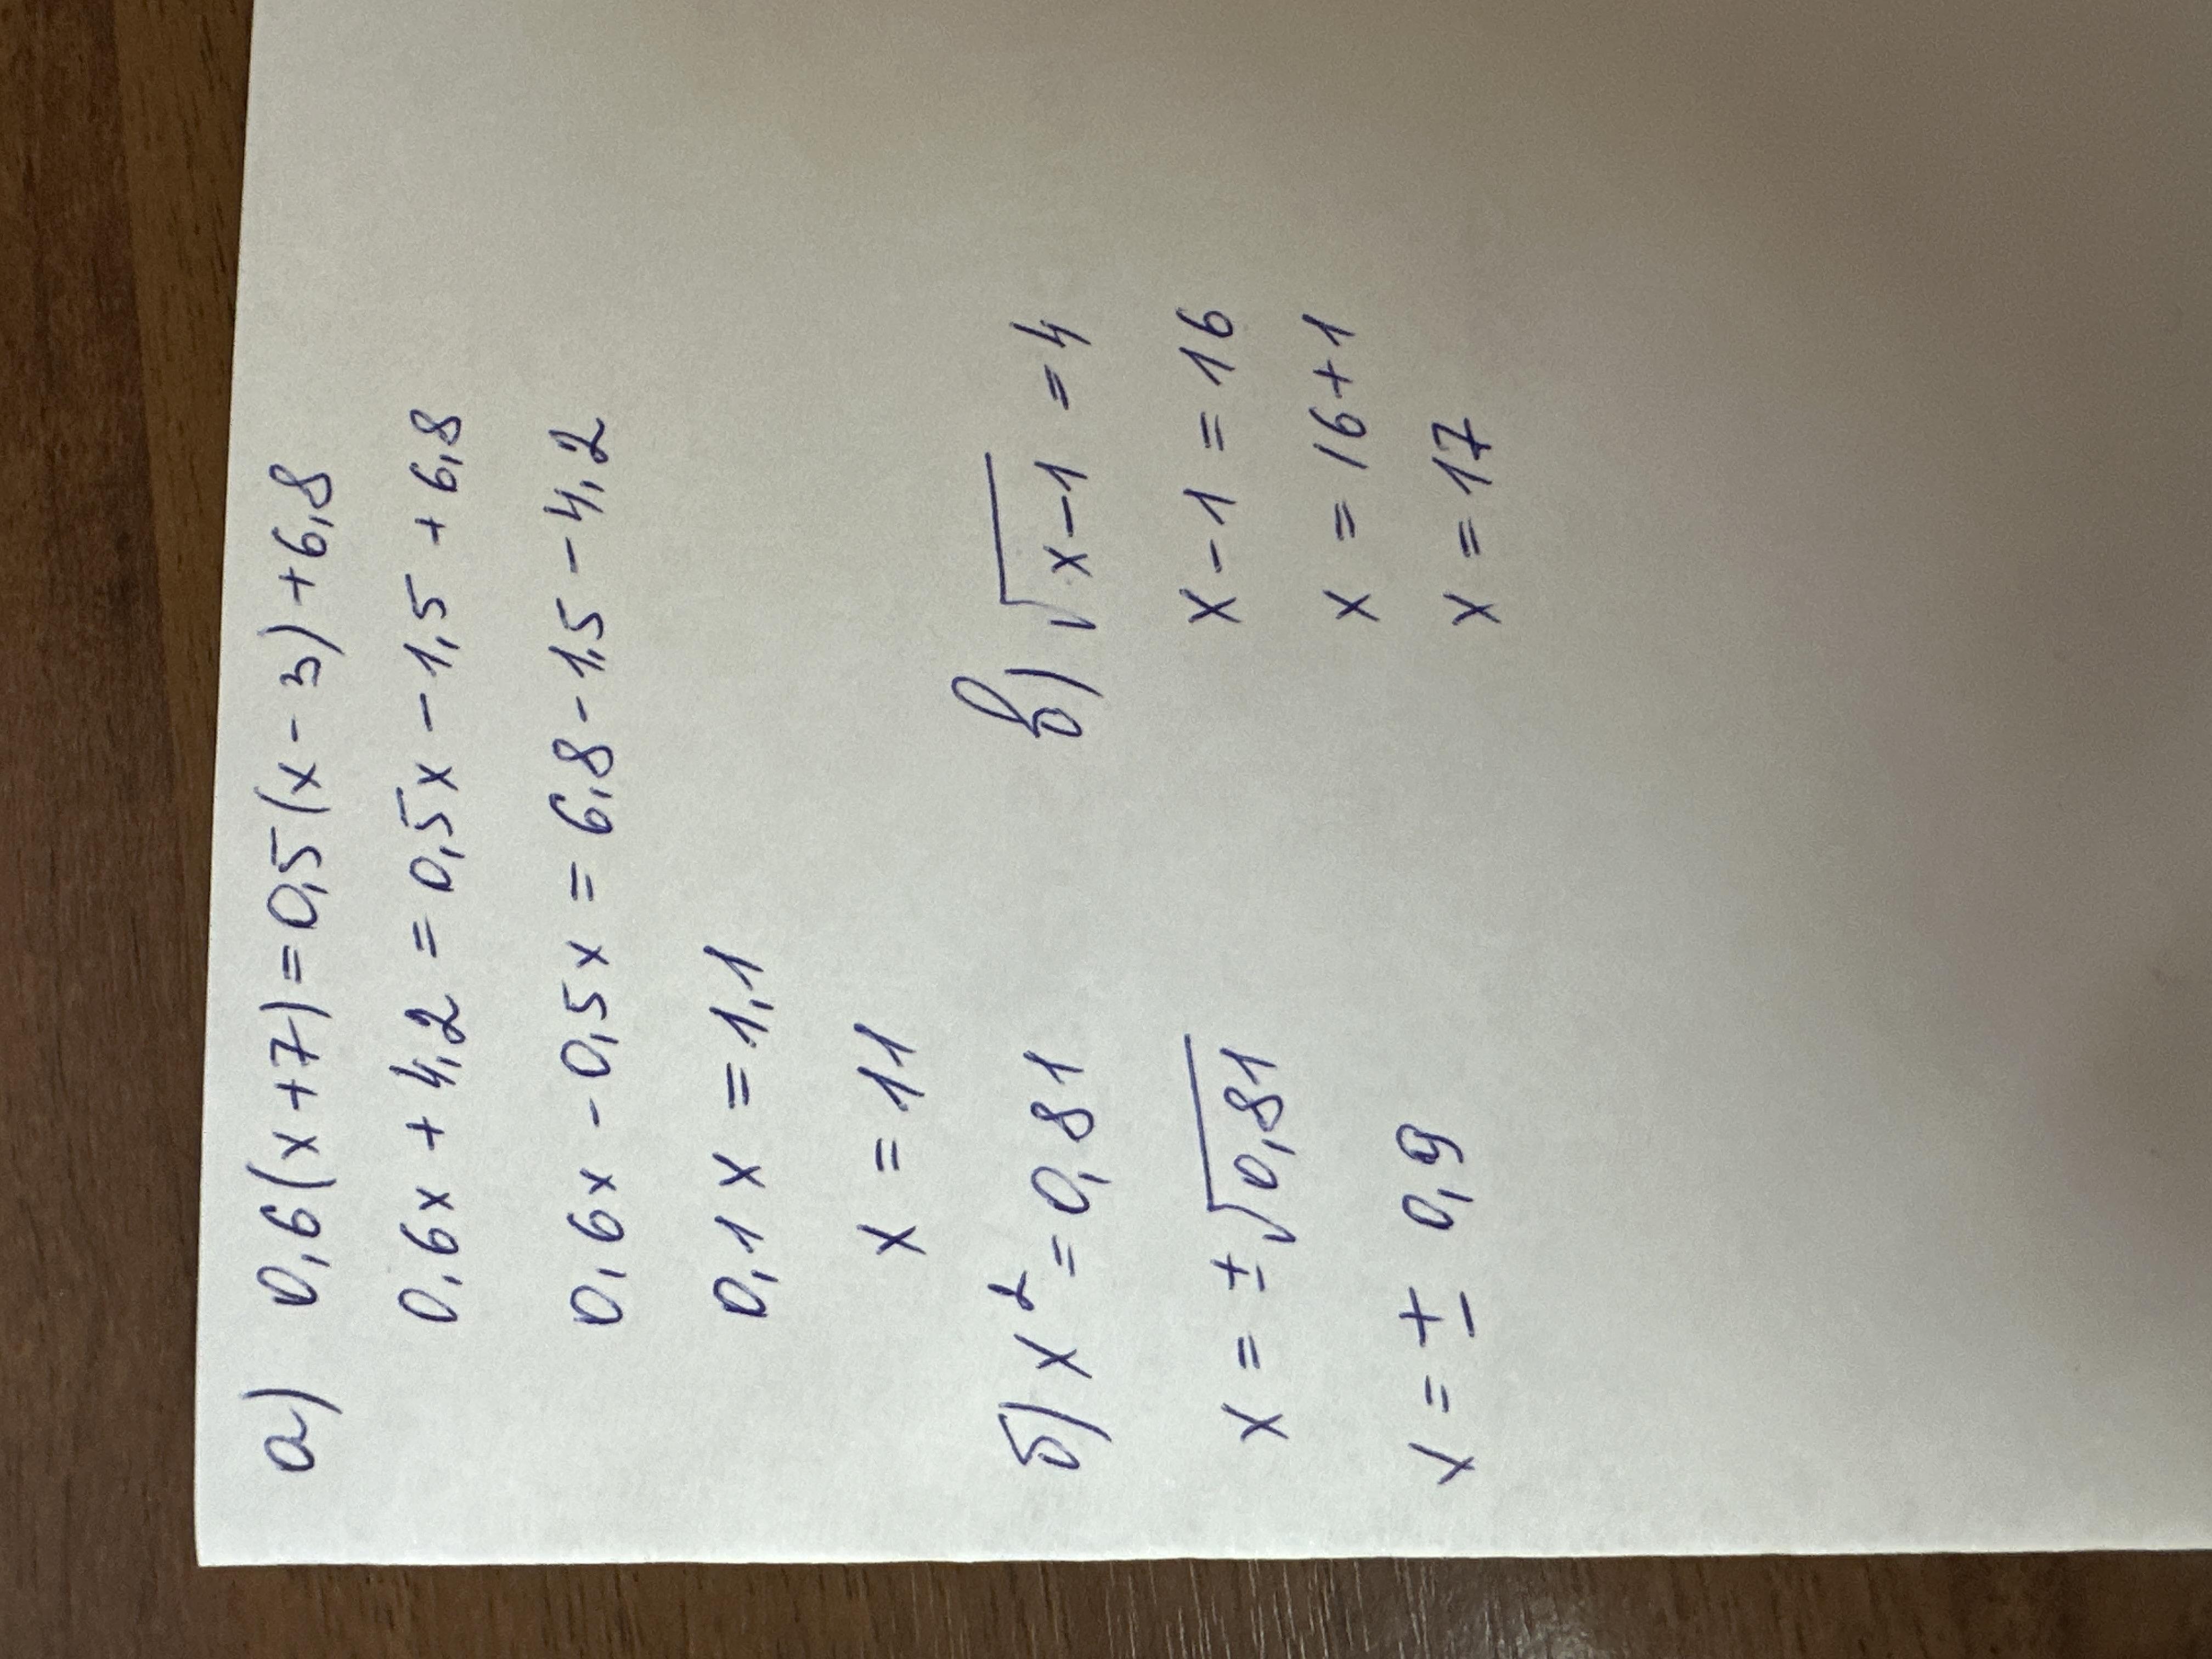 а) 0,6(x+7)=0,5(x-3)+6,8
0,6x+4,2=0,5x-1,5+6,8
0,6x-0,5x=6,8-1,5-4,2
0,1x=1,1
x=11
б) x²=0,81
x=±√0,81
x=±0,9
в) √x-1=4
x-1=16
x=16+1
x=17